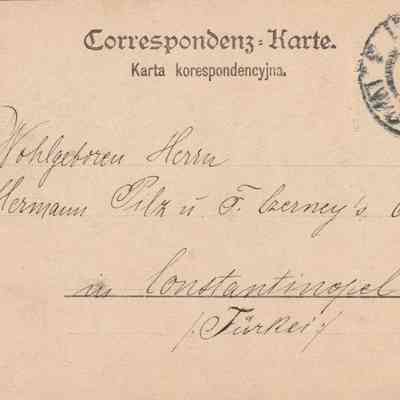 Correspondenz-Karte.
Karta korespondencyjna.
Wohlgeboren Herrn
Hermann Pilz u F. Czerney's
in Constantinopel
/Türkei/